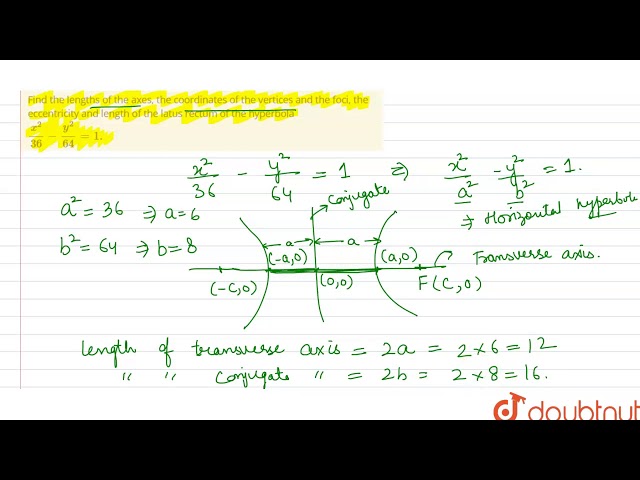 Find the lengths of the axes, the coordinates of the vertices and the foci, the
eccentricity and length of the latus rectum of the hyperbola
x²/36 − y²/64 = 1.
x²/36 − y²/64 = 1 ⇒ x²/a² − y²/b² = 1.
⇒ Horizontal hyperbola
a² = 36 ⇒ a = 6
b² = 64 ⇒ b = 8
Conjugate
a a
(-a,0) (a,0) Transverse axis.
(-c,0) (0,0) F(C,0)
length of transverse axis = 2a = 2×6 = 12
" " Conjugate " = 2b = 2×8 = 16.
doubtnut